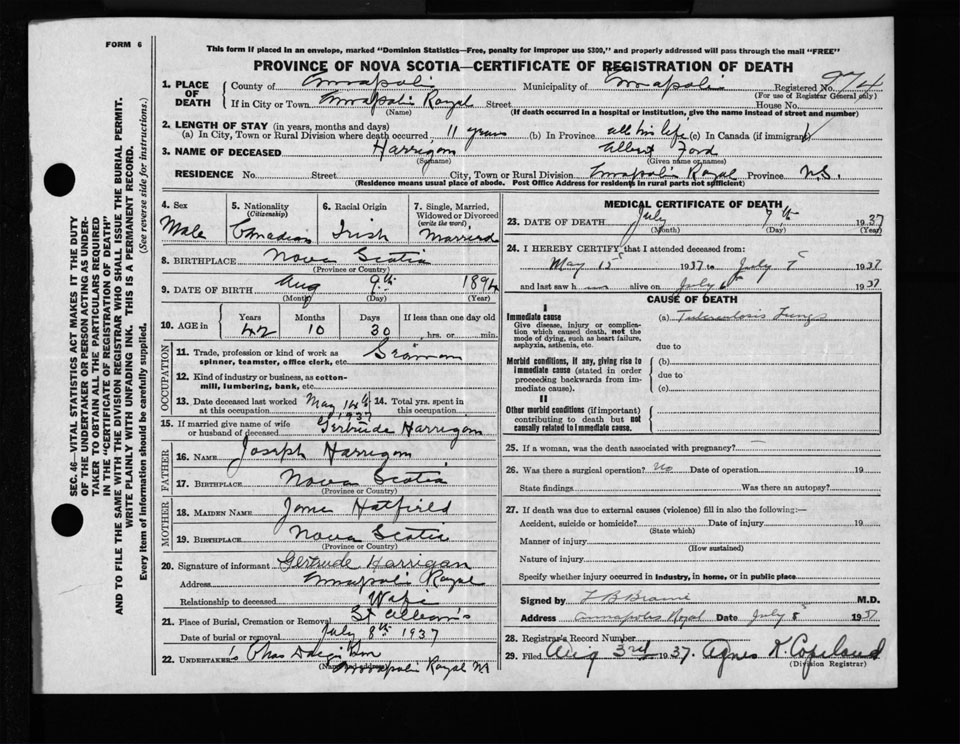 FORM 6
This form if placed in an envelope, marked "Dominion Statistics—Free, penalty for improper use $300," and properly addressed will pass through the mail "FREE"
PROVINCE OF NOVA SCOTIA—CERTIFICATE OF REGISTRATION OF DEATH
1. PLACE OF DEATH County of Annapolis Municipality of Annapolis Registered No. 974
(For use of Registrar General only)
If in City or Town Annapolis Royal Street House No.
(Name) (If death occurred in a hospital or institution, give the name instead of street and number)
2. LENGTH OF STAY (in years, months and days)
(a) In City, Town or Rural Division where death occurred 11 years (b) In Province all his life (c) In Canada (if immigrant)
3. NAME OF DECEASED Harrigan Albert Ford
(Surname) (Given name or names)
RESIDENCE No. Street City, Town or Rural Division Annapolis Royal Province N.S.
(Residence means usual place of abode. Post Office Address for residents in rural parts not sufficient)
4. Sex Male
5. Nationality (Citizenship) Canadian
6. Racial Origin Irish
7. Single, Married, Widowed or Divorced (write the word) Married
8. BIRTHPLACE Nova Scotia
(Province or Country)
9. DATE OF BIRTH Aug 9th 1894
(Month) (Day) (Year)
10. AGE in Years Months Days If less than one day old
42 10 30 hrs. or min.
OCCUPATION
11. Trade, profession or kind of work as spinner, teamster, office clerk, etc.
12. Kind of industry or business, as cotton-mill, lumbering, bank, etc.
13. Date deceased last worked at this occupation May 14th 1937
14. Total yrs. spent in this occupation
15. If married give name of wife or husband of deceased Gertrude Harrigan
FATHER
16. NAME Joseph Harrigan
17. BIRTHPLACE Nova Scotia
(Province or Country)
MOTHER
18. MAIDEN NAME Hatfield
19. BIRTHPLACE Nova Scotia
(Province or Country)
20. Signature of informant Gertrude Harrigan
Address Annapolis Royal
Relationship to deceased Wife
21. Place of Burial, Cremation or Removal St
Date of burial or removal July 8th 1937
22. UNDERTAKER'S Chas
(Name and address) Annapolis Royal NS
MEDICAL CERTIFICATE OF DEATH
23. DATE OF DEATH July 7th 1937
(Month) (Day) (Year)
24. I HEREBY CERTIFY that I attended deceased from:
May 15 1937 to July 7 1937
and last saw h im alive on July 6 1937
CAUSE OF DEATH
I
Immediate cause (a) Tuberculosis Lungs
Give disease, injury or complication which caused death, not the mode of dying, such as heart failure, asphyxia, asthenia, etc.
due to
Morbid conditions, if any, giving rise to immediate cause (stated in order proceeding backwards from immediate cause).
(b)
due to
(c)
II
Other morbid conditions (if important) contributing to death but not causally related to immediate cause.
25. If a woman, was the death associated with pregnancy? —
26. Was there a surgical operation? No Date of operation 19
State findings Was there an autopsy?
27. If death was due to external causes (violence) fill in also the following:—
Accident, suicide or homicide? Date of injury 19
(State which)
Manner of injury
(How sustained)
Nature of injury
Specify whether injury occurred in industry, in home, or in public place
Signed by M.D.
Address Annapolis Royal Date July 8 1937
28. Registrar's Record Number
29. Filed Aug 3rd 1937. Agnes K. Copeland
(Division Registrar)
SEC. 46— VITAL STATISTICS ACT MAKES IT THE DUTY
OF THE UNDERTAKER OR PERSON ACTING AS UNDER-
TAKER TO OBTAIN ALL THE PARTICULARS REQUIRED
IN THE "CERTIFICATE OF REGISTRATION OF DEATH"
AND TO FILE THE SAME WITH THE DIVISION REGISTRAR WHO SHALL ISSUE THE BURIAL PERMIT.
WRITE PLAINLY WITH UNFADING INK. THIS IS A PERMANENT RECORD.
Every item of information should be carefully supplied. (See reverse side for instructions.)